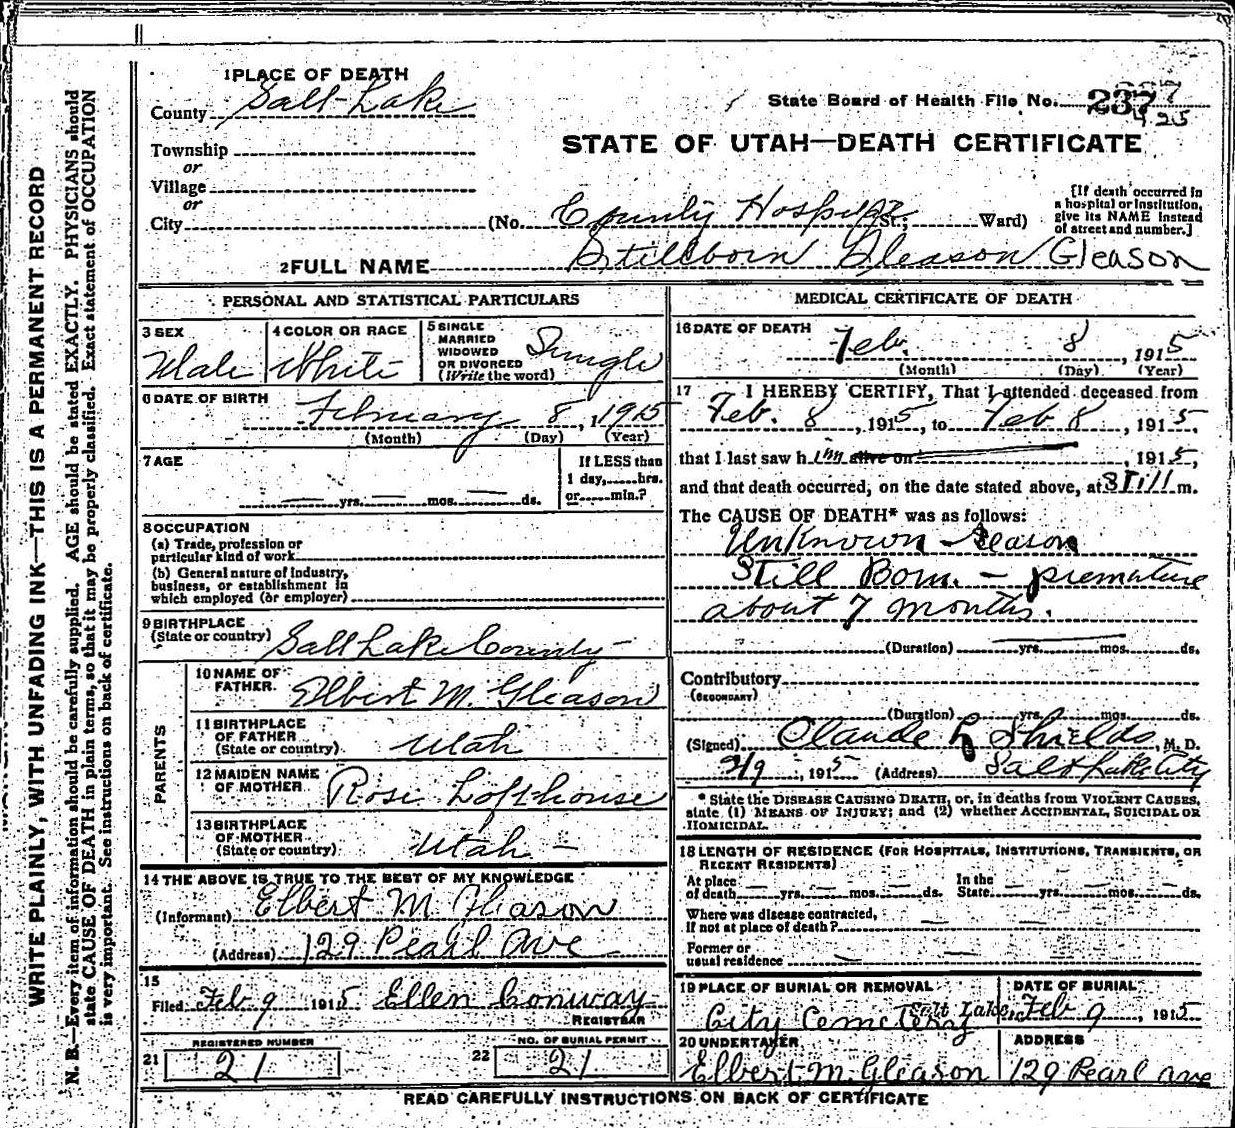 WRITE PLAINLY, WITH UNFADING INK—THIS IS A PERMANENT RECORD
N. B.—Every item of information should be carefully supplied. AGE should be stated EXACTLY. PHYSICIANS should
state CAUSE OF DEATH in plain terms, so that it may be properly classified. Exact statement of OCCUPATION
is very important. See instructions on back of certificate.
1 PLACE OF DEATH
County Salt Lake
Township
or
Village
or
City
State Board of Health File No. 237
425
STATE OF UTAH—DEATH CERTIFICATE
(No. County Hospital St.; Ward)
[If death occurred in
a hospital or institution,
give its NAME instead
of street and number.]
2 FULL NAME Stillborn Gleason Gleason
PERSONAL AND STATISTICAL PARTICULARS
3 SEX
Male
4 COLOR OR RACE
White
5 SINGLE
MARRIED
WIDOWED
OR DIVORCED
(Write the word)
Single
6 DATE OF BIRTH
February 8, 1915
(Month) (Day) (Year)
7 AGE
yrs. mos. ds.
If LESS than
1 day, hrs.
or min.?
8 OCCUPATION
(a) Trade, profession or
particular kind of work
(b) General nature of industry,
business, or establishment in
which employed (or employer)
9 BIRTHPLACE
(State or country) Salt Lake County
PARENTS
10 NAME OF
FATHER. Elbert M. Gleason
11 BIRTHPLACE
OF FATHER
(State or country) Utah
12 MAIDEN NAME
OF MOTHER Rose Lofthouse
13 BIRTHPLACE
OF MOTHER
(State or country) Utah
14 THE ABOVE IS TRUE TO THE BEST OF MY KNOWLEDGE
(Informant) Elbert M Gleason
(Address) 129 Pearl Ave
15
Filed Feb 9 1915 Ellen Conway
REGISTRAR
REGISTERED NUMBER
21 21
NO. OF BURIAL PERMIT
22 21
MEDICAL CERTIFICATE OF DEATH
16 DATE OF DEATH
Feb. 8, 1915
(Month) (Day) (Year)
17 I HEREBY CERTIFY, That I attended deceased from
Feb. 8, 1915, to Feb 8, 1915.
that I last saw him alive on , 1915,
and that death occurred, on the date stated above, at Still m.
The CAUSE OF DEATH* was as follows:
Unknown Reason
Still Born. - premature
about 7 months.
(Duration) yrs. mos. ds.
Contributory
(SECONDARY)
(Duration) yrs. mos. ds.
(Signed) Claude L Shields, M. D.
2/9, 1915 (Address) Salt Lake City
* State the DISEASE CAUSING DEATH, or, in deaths from VIOLENT CAUSES,
state (1) MEANS OF INJURY; and (2) whether ACCIDENTAL, SUICIDAL OR
HOMICIDAL.
18 LENGTH OF RESIDENCE (FOR HOSPITALS, INSTITUTIONS, TRANSIENTS, OR
RECENT RESIDENTS)
At place
of death yrs. mos. ds.
In the
State yrs. mos. ds.
Where was disease contracted,
If not at place of death?
Former or
usual residence
19 PLACE OF BURIAL OR REMOVAL
City Cemetery Salt Lake
DATE OF BURIAL
Feb 9, 1915
20 UNDERTAKER
Elbert M. Gleason
ADDRESS
129 Pearl Ave
READ CAREFULLY INSTRUCTIONS ON BACK OF CERTIFICATE